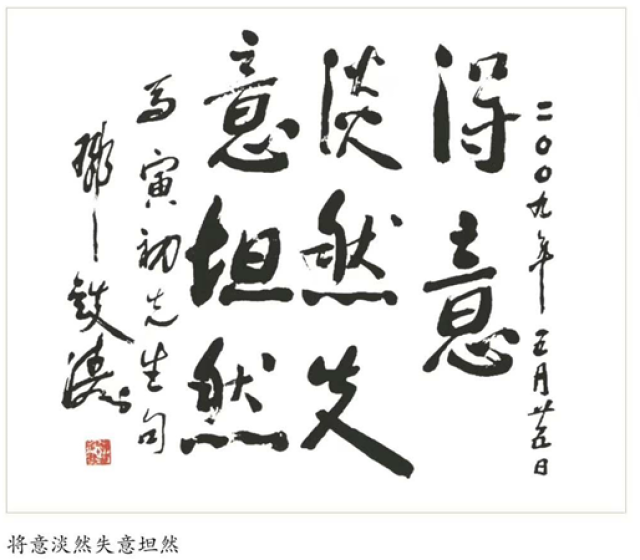 二〇〇九年五月廿五日
得意
淡然失
意坦然
马寅初先生句
鄧鉄濤
将意淡然失意坦然